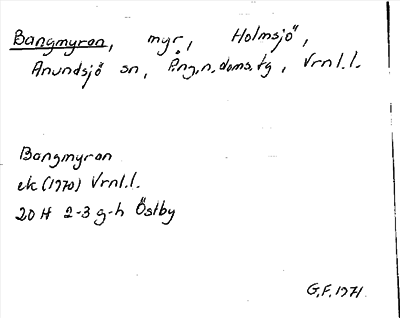 Bangmyran, myr, Holmsjö,
Anundsjö sn, Ång.n.doms.tg, Vrnl.l.
Bangmyran
ek (1970) Vrnl.l.
20 H 2-3 g-h Östby
G.F. 1971.